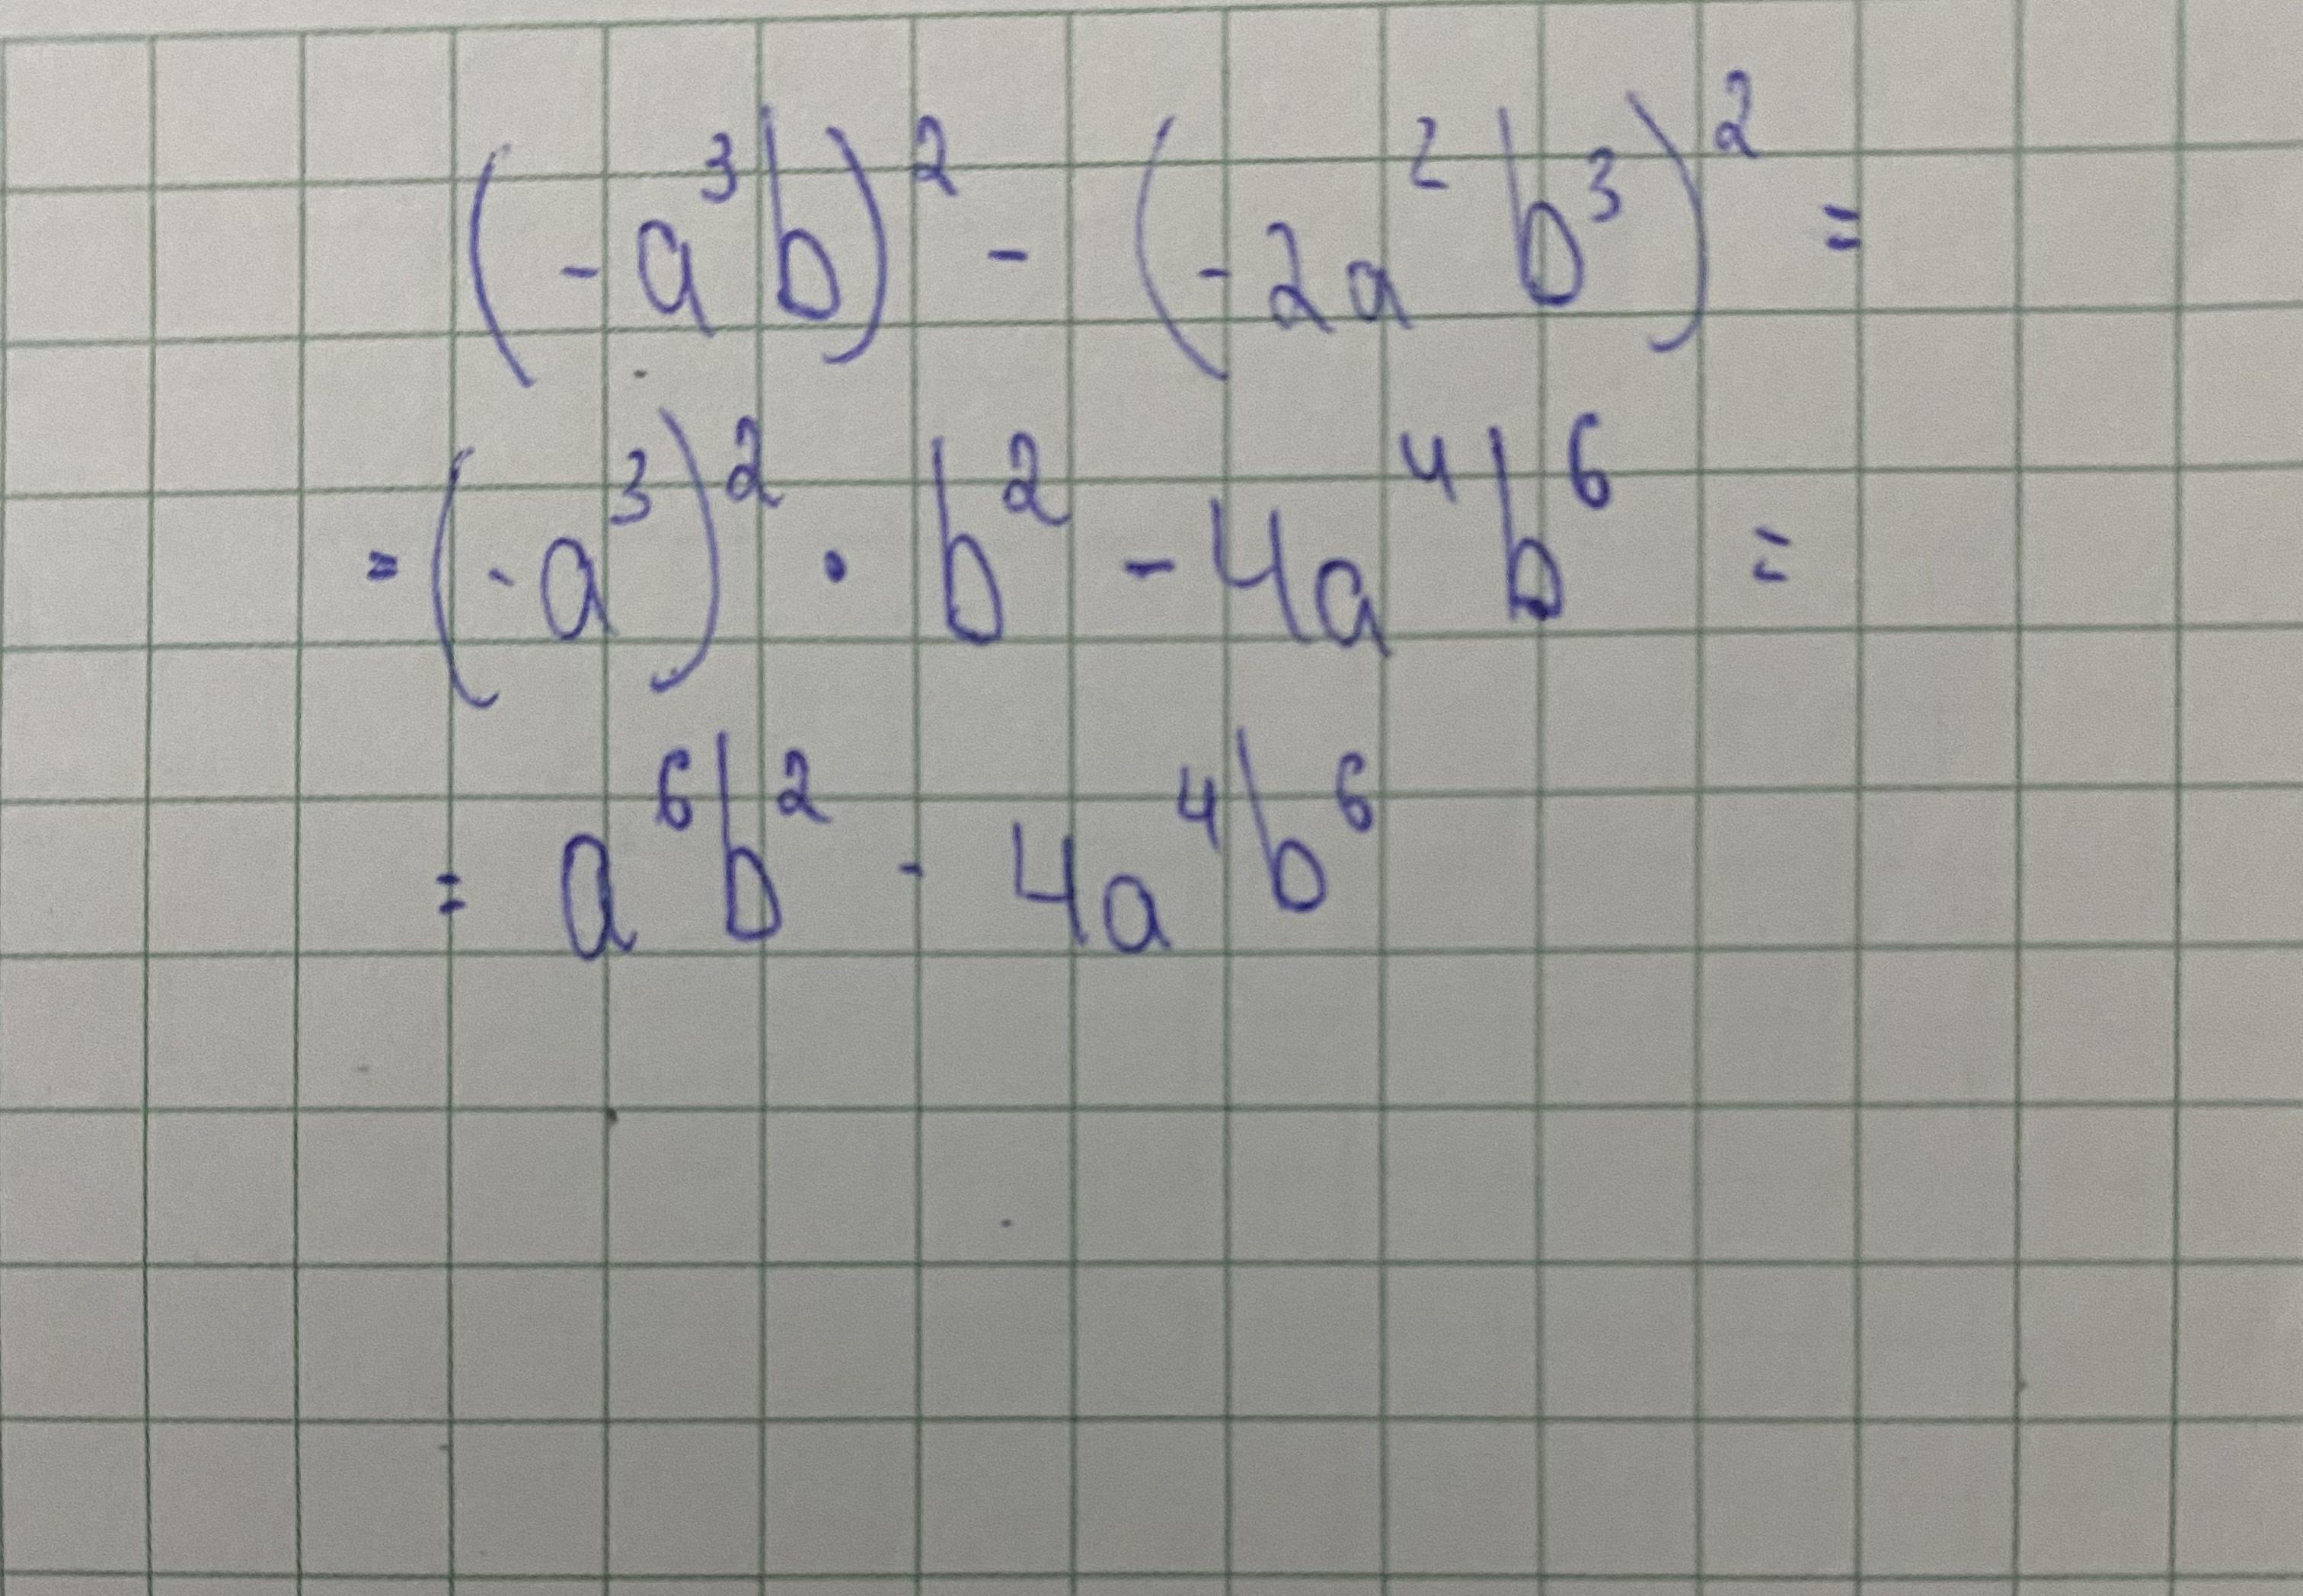 (-a³b)² - (-2a²b³)² =
= (-a³)² · b² - 4a⁴b⁶ =
= a⁶b² - 4a⁴b⁶